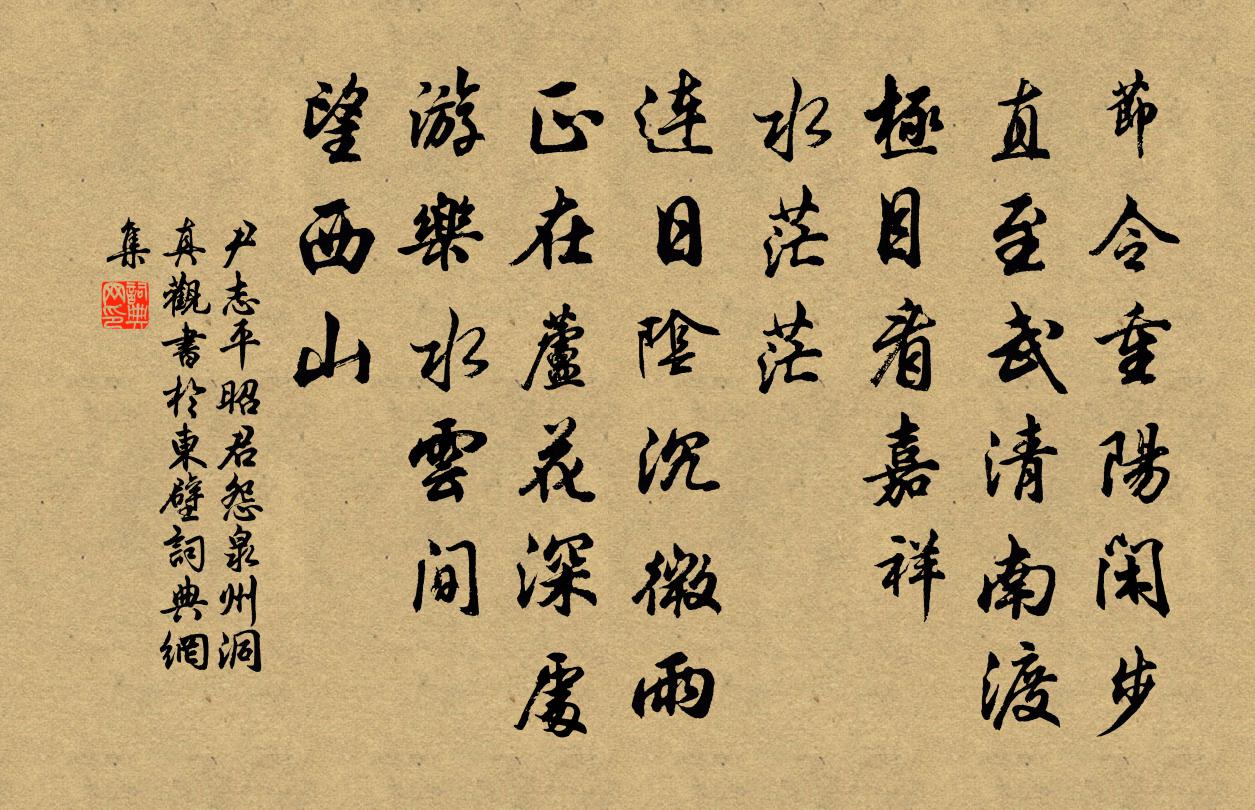 節令重陽閑步
直至武清南渡
極目看嘉祥
水茫茫
連日陰沉微雨
正在蘆花深處
游樂水雲間
望西山
尹志平昭君怨泉州洞
真觀書於東壁詞典網
集
詞典
网印